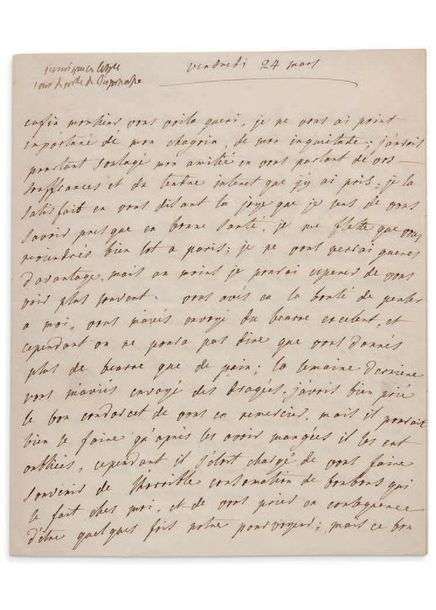 vendredi 24 mars
enfin monsieur vous voila gueri, je ne vous ai point
importuné de mon chagrin, de mon inquietude; j'aurois
pourtant soulagé mon amitié en vous parlant de vos
souffrances et du tendre interet que j'y ai pris, je la
satisfait en vous disant la joye que je sens de vous
savoir presque en bonne santé, je me flatte que vous
reviendrés bien tot a paris; je ne vous verai gueres
d'avantage, mais au moins je pourai esperer de vous
voir plus souvent. vous avés eu la bonté de penser
a moi, vous m'avés envoyé du beurre excelent, et
cependant on ne poura pas dire que vous donnés
plus de beurre que de pain; la semaine derniere
vous m'aviés envoyé des dragés, j'avois bien prié
le bon condorcet de vous en remercier, mais il pouroit
bien se faire qu'après les avoir mangées il les eut
oubliées, cependant il s'etoit chargé de vous faire
souvenir de l'horrible consomation de bonbons qui
se fait chés moi, et de vous prier en consequence
d'être quelques fois notre pourvoyeur; mais ce bon